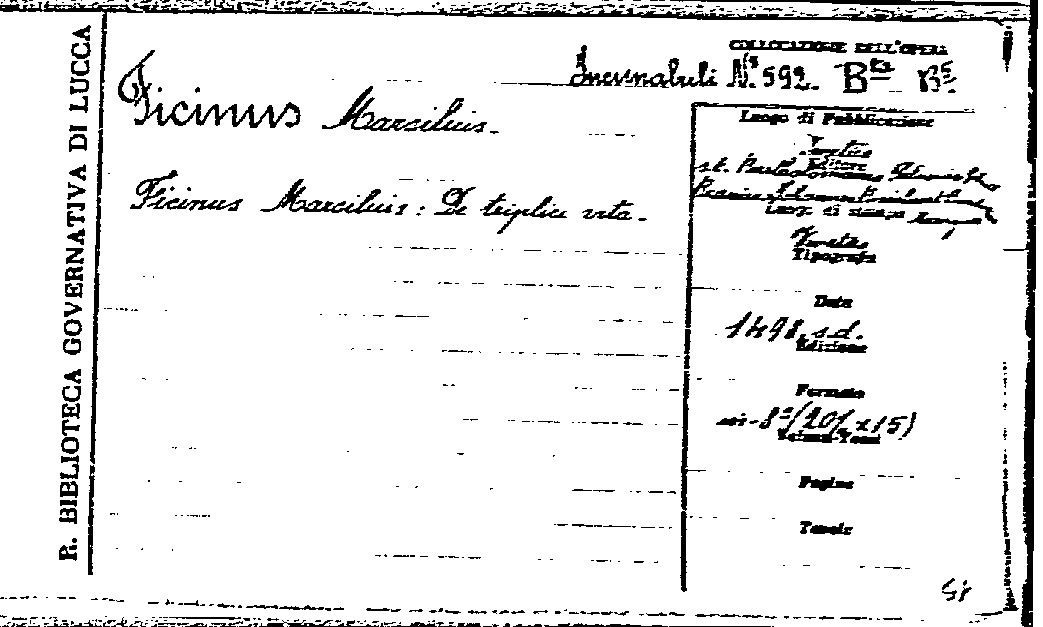 R. BIBLIOTECA GOVERNATIVA DI LUCCA
COLLOCAZIONE DELL'OPERA
Incunabuli N.º 592. Bta B5.
Ficinus Marcilius.
Ficinus Marcilius: De triplici vita.
Luogo di Pubblicazione
Venetiis
Editore
Luogo di stampa
Venetiis
Tipografia
Data
1498, s.d.
Edizione
Formato
in-8º (20½ x 15)
Volumi-Tomi
Pagine
Tavole